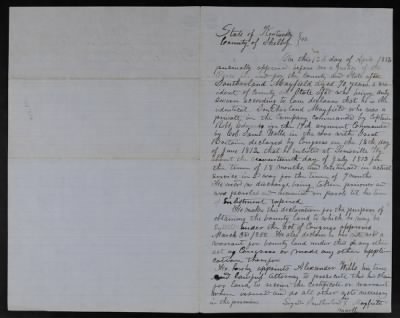 State of Kentucky
County of Shelby } ss.
On this 12th day of April 1852
personally appeared before me a Justice of the
Peace in and for the County and State afore
Southerland Mayfield aged 70 years a res
ident of County and State afst who being duly
sworn according to law declares that he is the
identical Southerland Mayfield who was a
private in the Company commanded by Captain
in the 17th regiment Commanded
by Col Saml Wells in the war with Great
Britain declared by Congress on the 18th day
of June 1812 that he enlisted at Louisville Ky
about the day of July 1813 for
the term of 18 months and continued in actual
service in war for the term of 9 months
He recd no discharge being taken prisoner and
was paroled and remained on parole til his term
of Enlistment expired
He makes this declaration for the purpose of
obtaining the bounty land to which he may be
entitled under the act of Congress approved
He also declares he has not a
warrant for bounty land under this or any other
act of Congress or made any other applic
cation therefor
He hereby appoints Alexander Wills his true
and lawful Attorney to prosecute this his claim
for land to receive the certificate or warrant
when issued and do all other acts necessary
in the premises
Signed Southerland Mayfield
mark